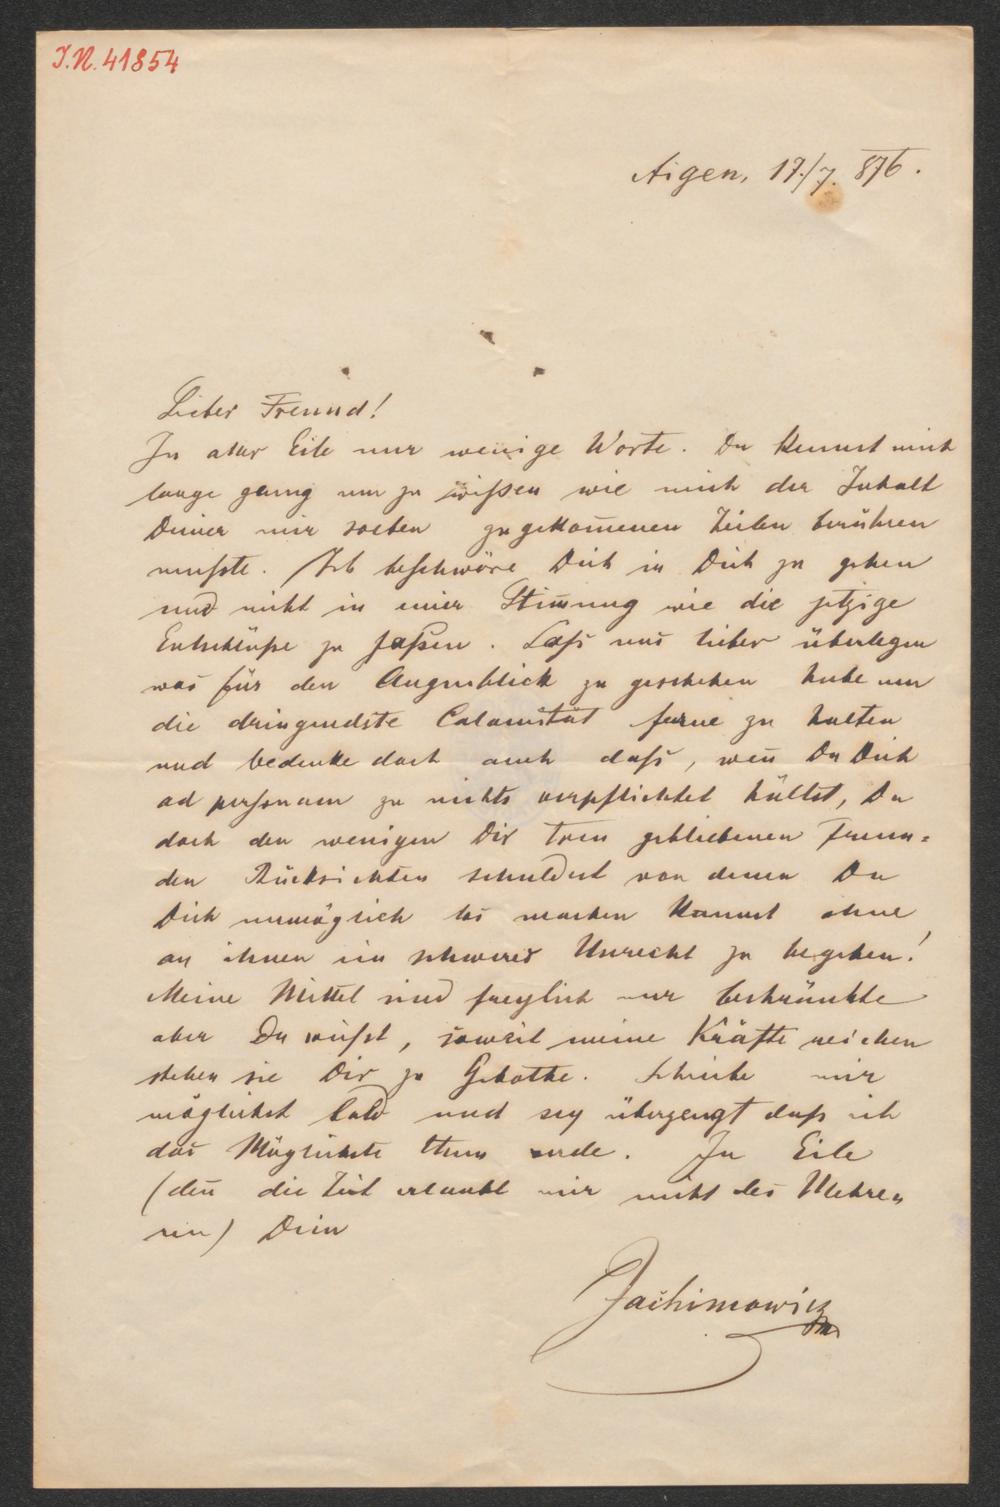 I.N. 41854
Aigen, 17./7. 876.
Lieber Freund!
In aller Eile nur wenige Worte. Du kennst mich
lange genug um zu wißen wie mich der Inhalt
Deiner mir soeben zugekom̄enen Zeilen berühren
mußte. Ich beschwöre Dich in Dich zu gehen
und nicht in einer Stim̄ung wie die jetzige
Entschlüße zu faßen. Laß uns lieber überlegen
was für den Augenblick zu geschehen habe um
die dringendste Calamität ferne zu halten
und bedenke doch auch daß, wen̄ Du Dich
ad personam zu nichts verpflichtet hältst, Du
doch den wenigen Dir treu gebliebenen Freun=
den Rücksichten schuldest von denen Du
Dich unmöglich los machen kannst ohne
an ihnen ein schweres Unrecht zu begehen!
Meine Mittel sind freylich nur beschränkte
aber Du weißt, soweit meine Kräfte reichen
stehen sie Dir zu Gebothe. Schreibe mir
möglichst bald und sey überzeugt daß ich
das Möglichste thun werde. In Eile
(den̄ die Zeit erlaubt mir nicht des Mehre
ren) Dein
Jachimowicz